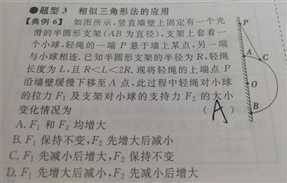 ●题型3 相似三角形法的应用
【典例6】 如图所示,竖直墙壁上固定有一个光
滑的半圆形支架(AB为直径),支架上套着一
个小球,轻绳的一端P悬于墙上某点,另一端
与小球相连.已知半圆形支架的半径为R,轻绳
长度为L,且R<L<2R.现将轻绳的上端点P
沿墙壁缓慢下移至A点,此过程中轻绳对小球
的拉力F₁及支架对小球的支持力F₂的大小
变化情况为 ( A )
A. F₁和F₂均增大
B. F₁保持不变,F₂先增大后减小
C. F₁先减小后增大,F₂保持不变
D. F₁先增大后减小,F₂先减小后增大
P
A
C
O
B